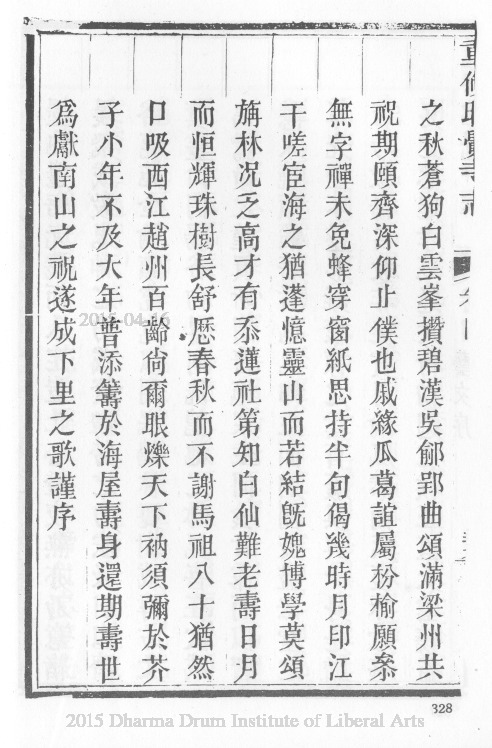 重修昭覺寺志
之秋蒼狗白雲峯攢碧漢吳郁郢曲頌滿梁州共
祝期頤齊深仰止僕也戚緣瓜葛誼屬枌榆願叅
無字禪未免蜂穿窗紙思持半句偈幾時月印江
干嗟宦海之猶蓬憶靈山而若結旣媿博學莫頌
旃林况乏高才有忝蓮社第知白仙難老壽日月
而恒輝珠樹長舒歷春秋而不謝馬祖八十猶然
口吸西江趙州百齡尙爾眼爍天下衲須彌於芥
子小年不及大年普添籌於海屋壽身還期壽世
爲獻南山之祝遂成下里之歌謹序
2015-04-16
328
2015 Dharma Drum Institute of Liberal Arts